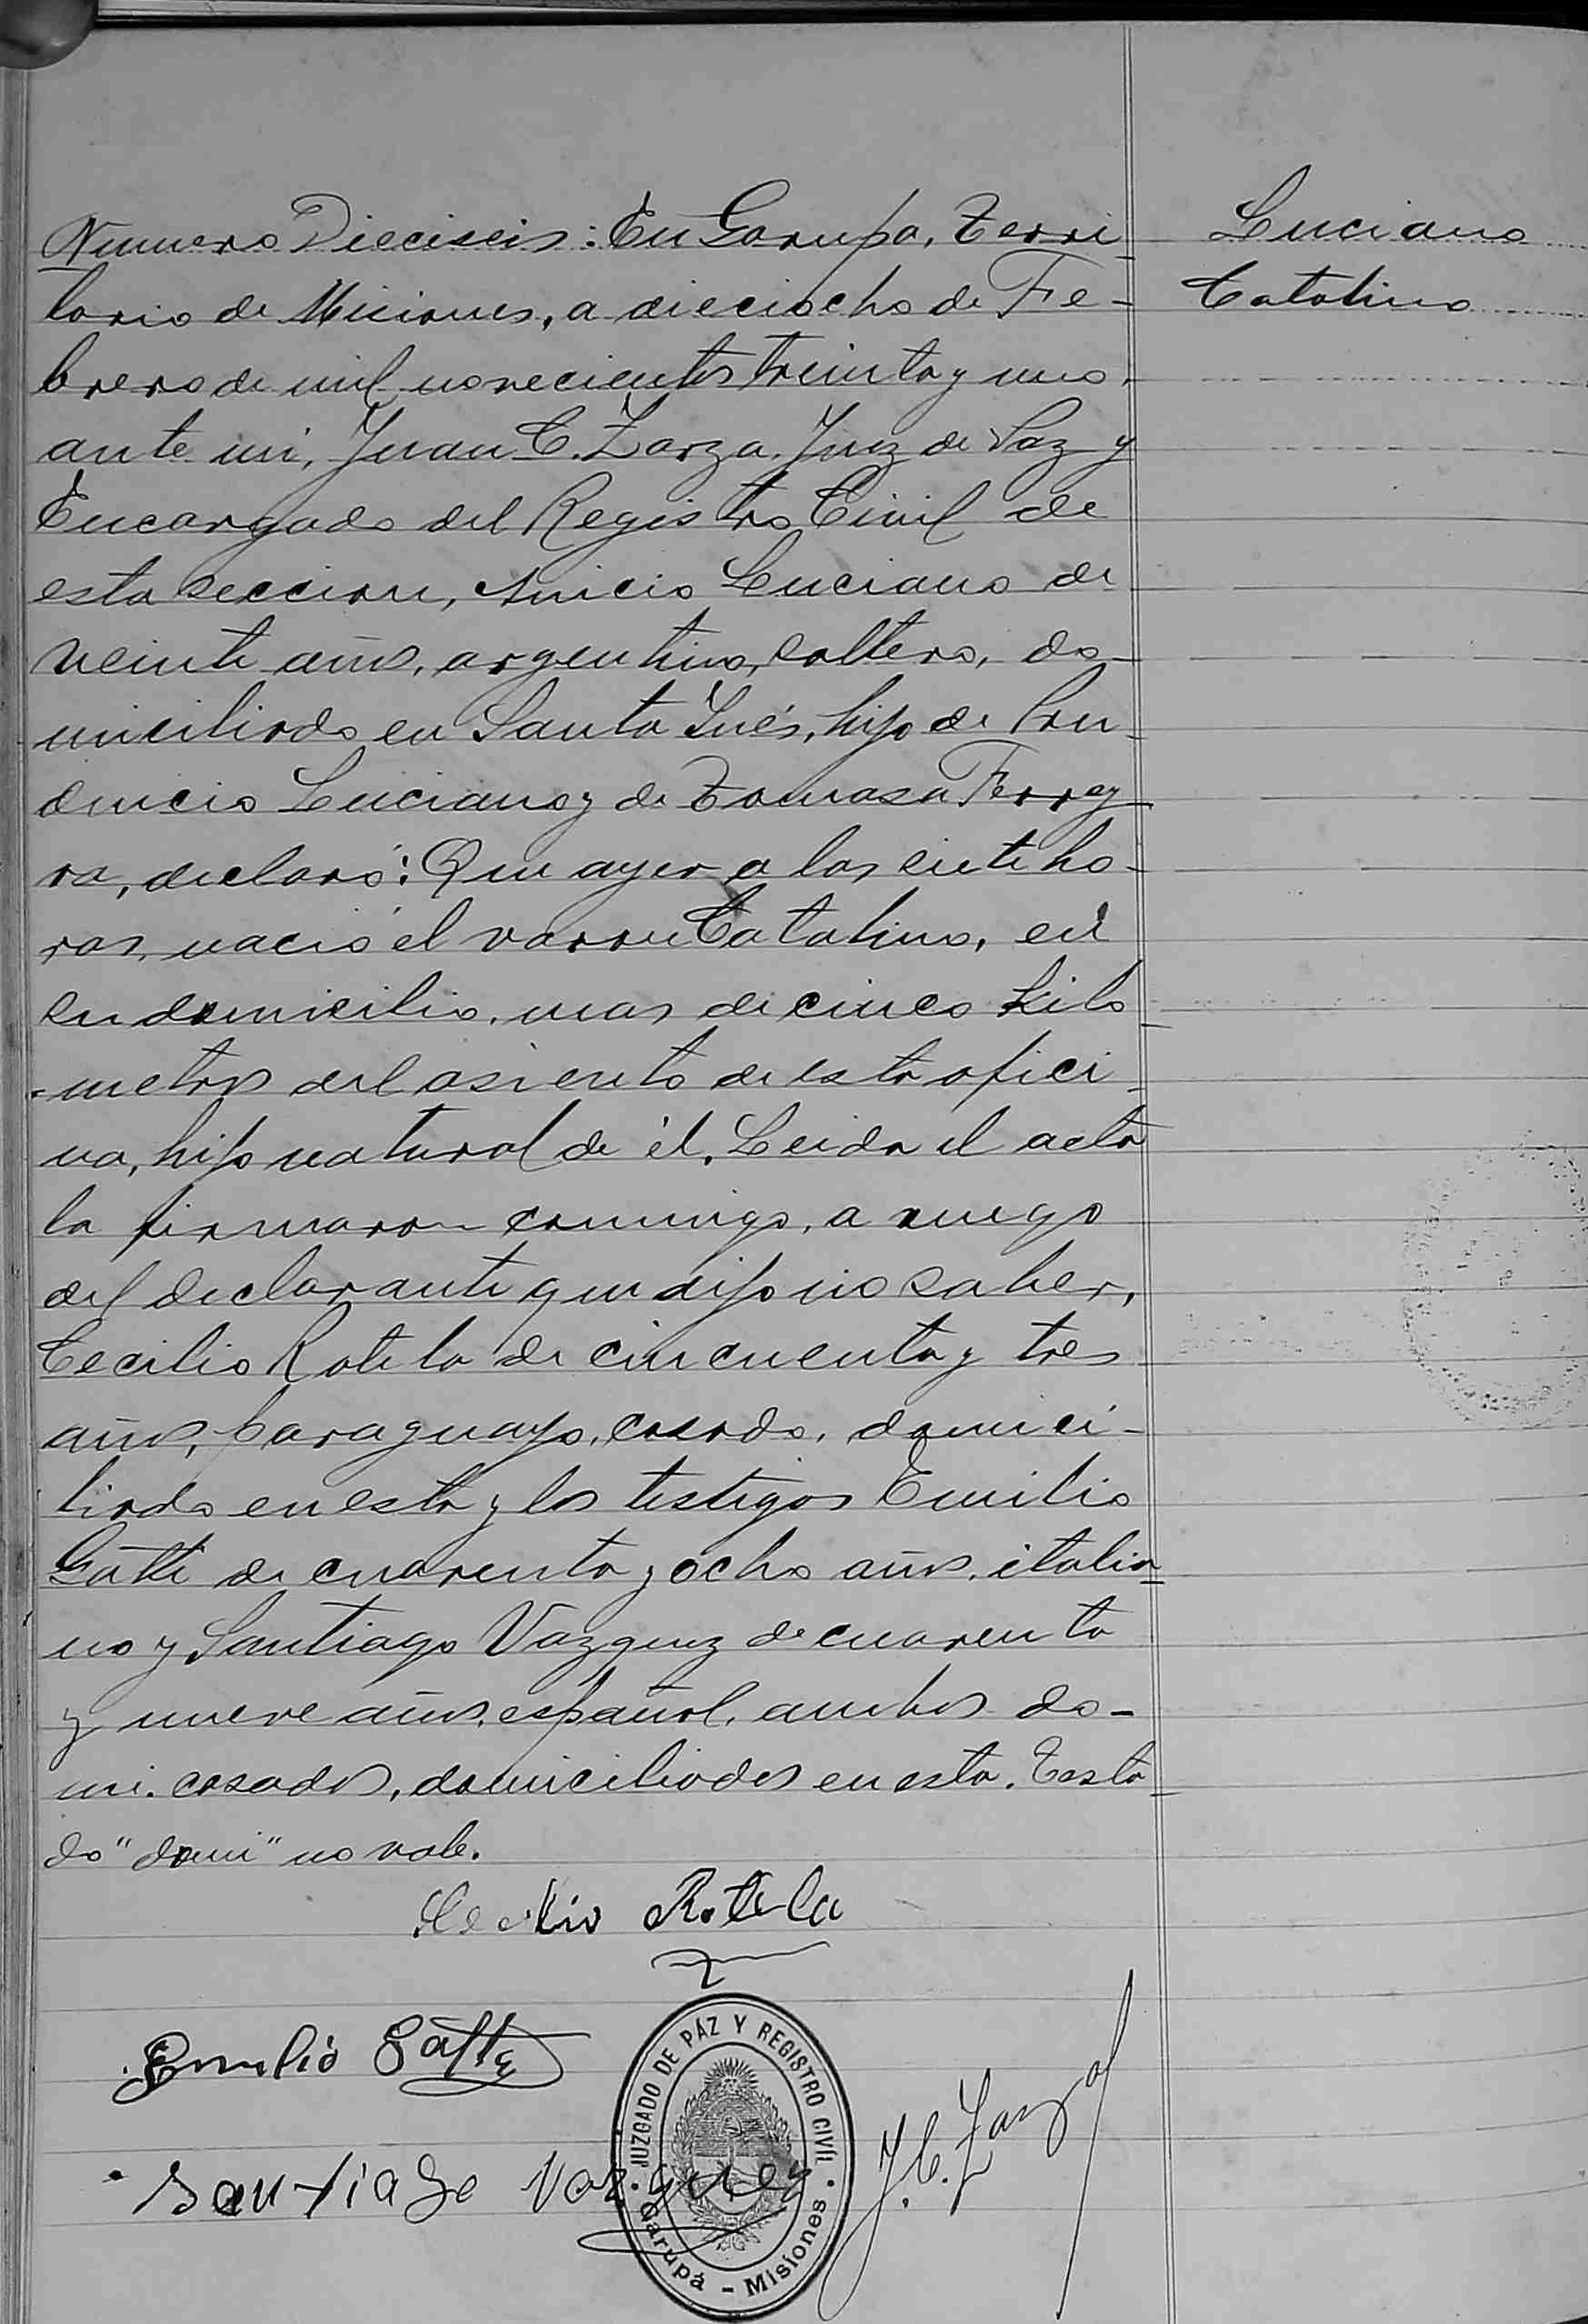 Numero Dieciseis: En Garupa, Terri-
torio de Misiones, a dieciocho de Fe-
brero de mil novecientos treinta y uno,
ante mi, Juan C. Zarza, Juez de Paz y
Encargado del Registro Civil de
esta seccion, Anicio Luciano de
veinte años, argentino, soltero, do-
miciliado en Santa Inés, hijo de Pru-
dencio Luciano y de Tomasa Ferrey-
ra, declaró: Que ayer a las siete ho-
ras, nació el varon Catalino, en
su domicilio, mas de cinco kilo-
metros del asiento de esta ofici-
na, hijo natural de él. Leida el acta
la firmaron conmigo, a ruego
del declarante que dijo no saber,
Cecilio Rotela de cincuenta y tres
años, paraguayo, casado, domici-
liado en esta y los testigos Emilio
Gatti de cuarenta y ocho años, italia-
no y Santiago Vazquez de cuarenta
y nueve años, español, ambos do-
mi. casados, domiciliados en esta. Testa-
do "domi" no vale.
Luciano
Catalino
Cecilio Rotela
Emilio Gatti
Santiago Vazquez
J. C. Zarza
JUZGADO DE PAZ Y REGISTRO CIVIL
Garupá - Misiones